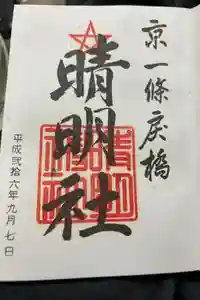 京一條戻橋
晴明社
平成弐拾六年九月七日